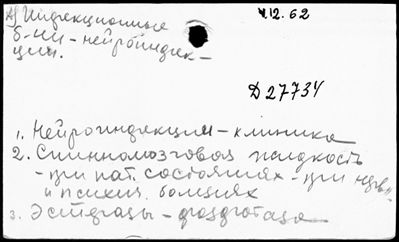 А) Инфекционные
б-ни - нейроинфек-
ции.
V.12.62
Д 27734
1. Нейроинфекции - клиника
2. Спинномозговая жидкость
- при пат. состояниях - при нервн.
и психич. болезнях
3. Эстеразы - фосфотаза